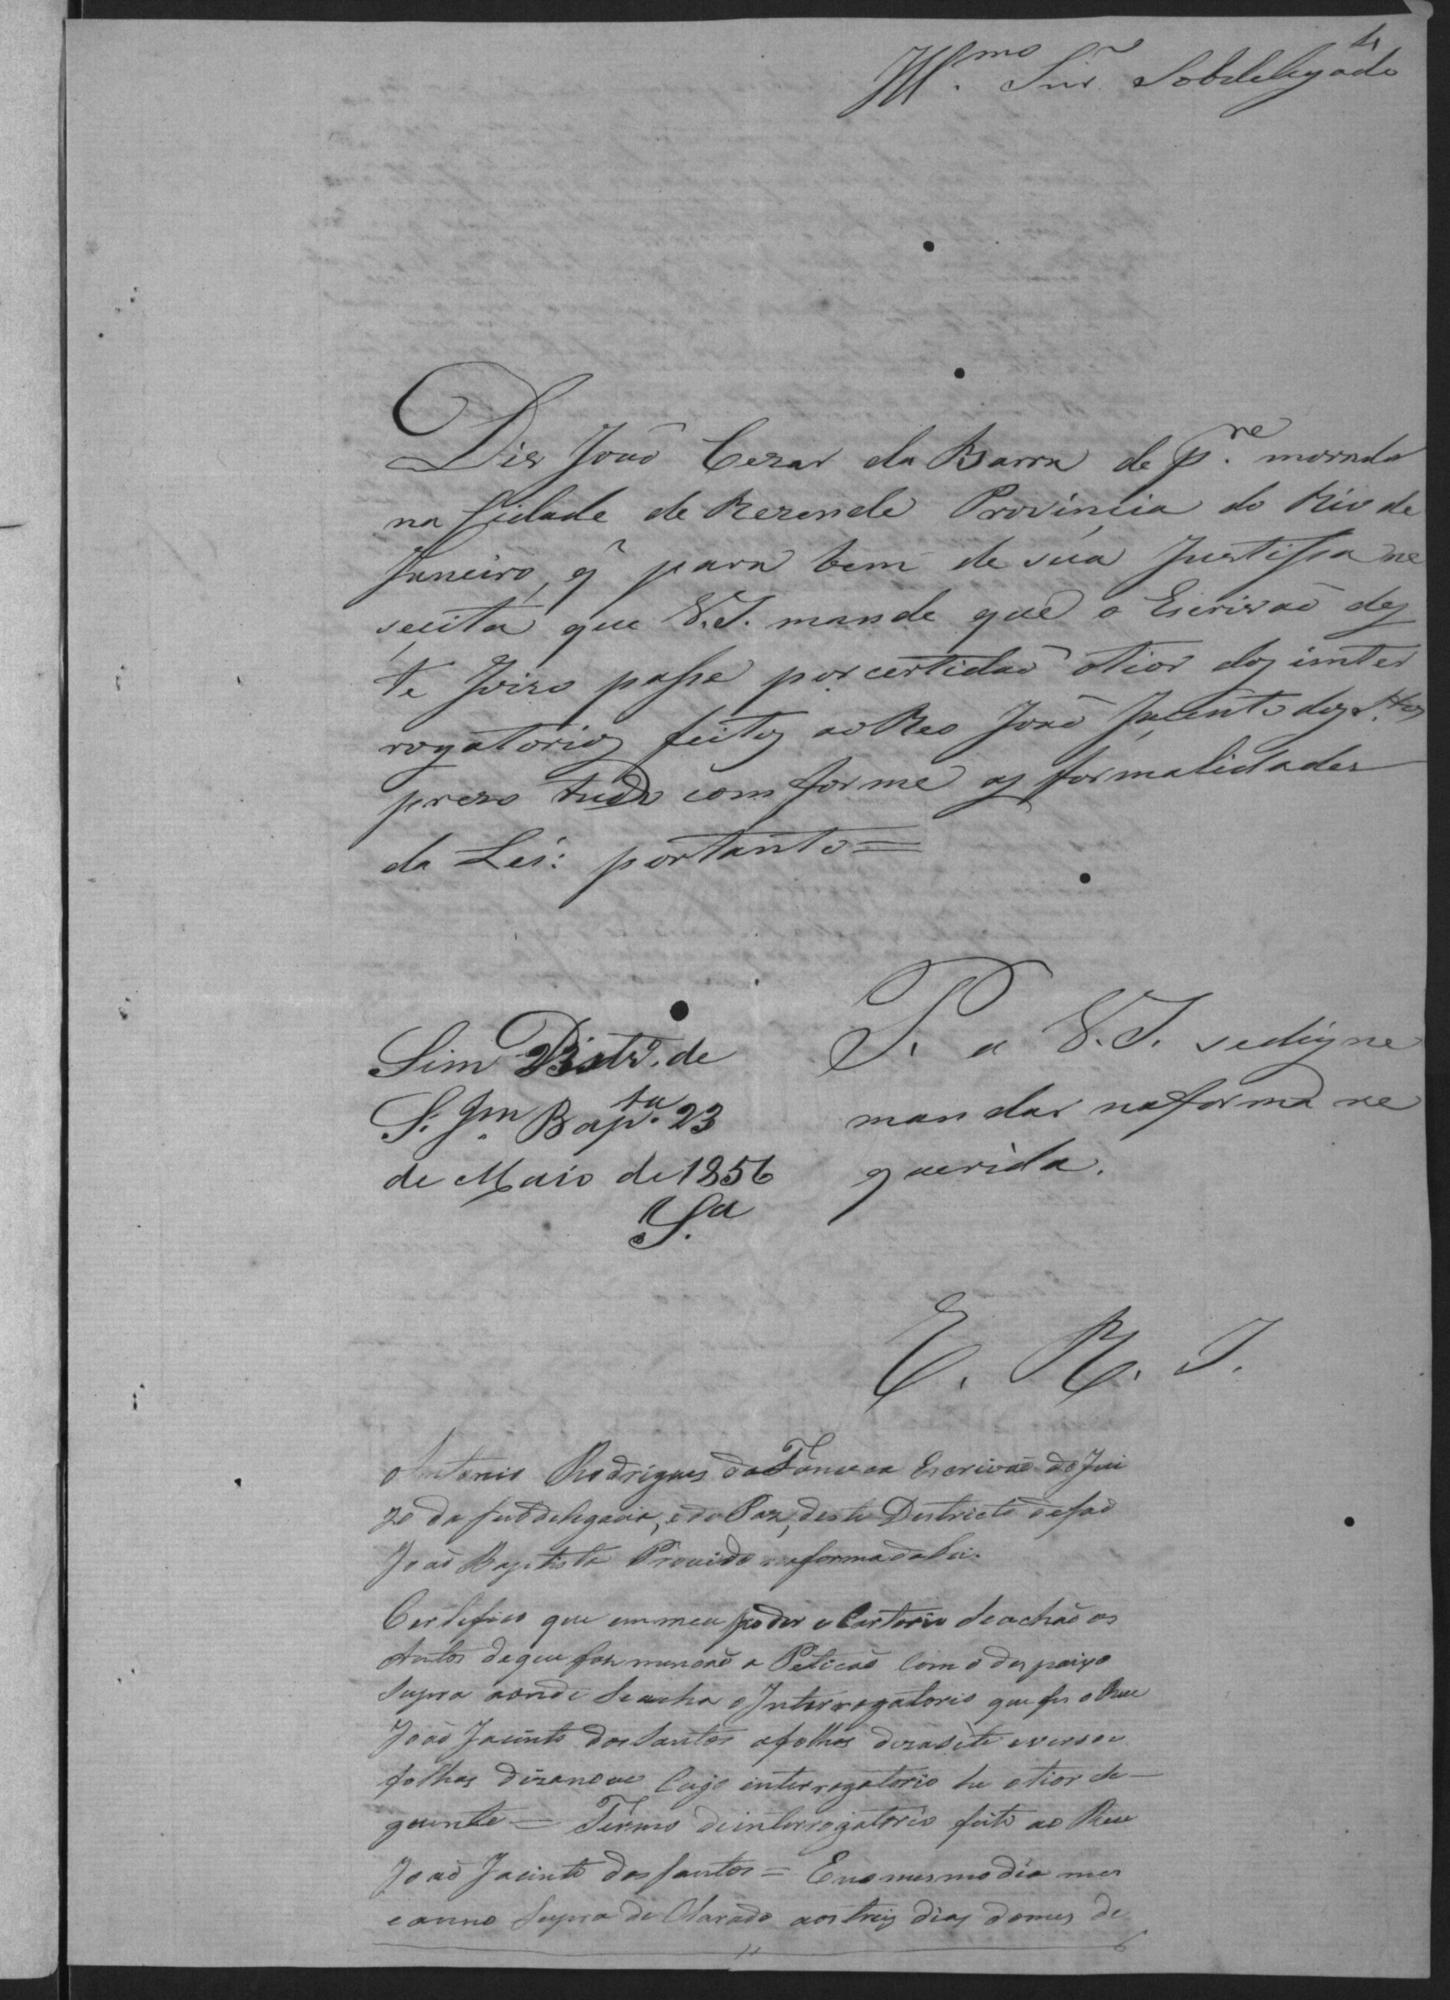 4
Ill.mo Snr. Sobdelegado
Diz João Cezar da Barra de p.re morador
na Cidade de Rezende Provincia do Rio de
Janeiro, q̃ para bem de sua Justissa ne
secita que V.S. mande que o Escrivaõ des
te Joizo passe por certidaõ otior dos inter
rogatorios feitos ao Reo João Jacinto dos S.tos
prezo tudo comforme as formalidades
da Lei: portanto =
P. a V.S. sedigne
mandar naforma re
querida.
Sim Distr.o de
S. Jm Bap.ta 23
de Maio de 1856
S.a
E. R. J.
Antonio Rodrigues da Fonseca Escrivaõ do Jui
zo da subdelegacia, e do Paz, deste Districto desaõ
Joaõ Baptista Provido naformadalei.
Certefico que emmeu poder e Cartorio seachaõ os
Autos de que faz mencaõ a Peticaõ Com o despaixo
Supra aonde seacha o Interrogatorio que fes o Reu
Joaõ Jacinto dos Santos afolhas dezasete everso e
folhas dezanove Cujo interrogatorio he otior se-
guinte = Termo deinterrogatorio feito ao Reu
Joaõ Jacinto dos Santos = Enomesmo dia mes
eanno Supra de Clarado aos treis dias domes de